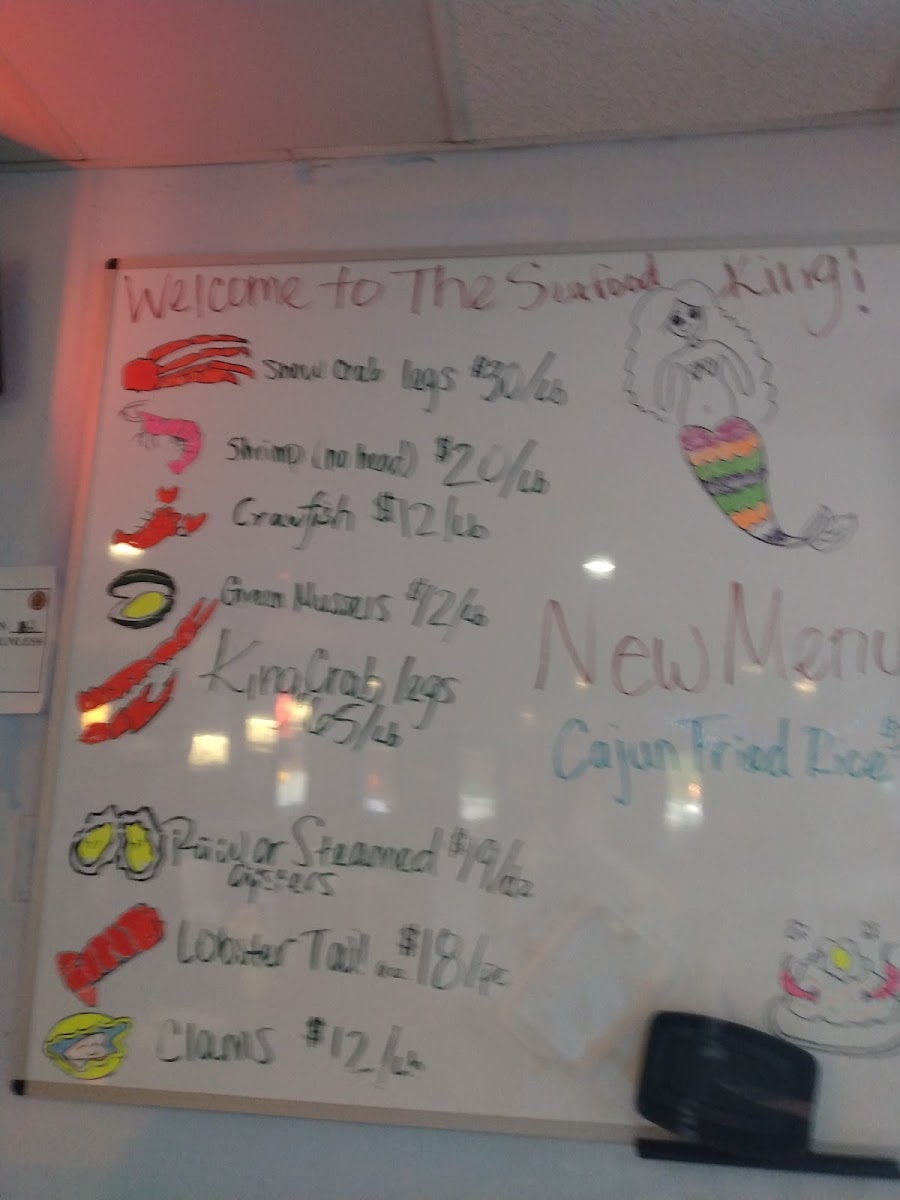 Welcome to The Seafood King!
Snow Crab legs $30/Lb
Shrimp (no head) $20/Lb
Crawfish $12/Lb
Green Mussels $12/Lb
King Crab legs
$65/Lb
New Menu
Cajun Fried Rice
Raw or Steamed $19/dz
oysters
Lobster Tail $18/pc
Clams $12/Lb